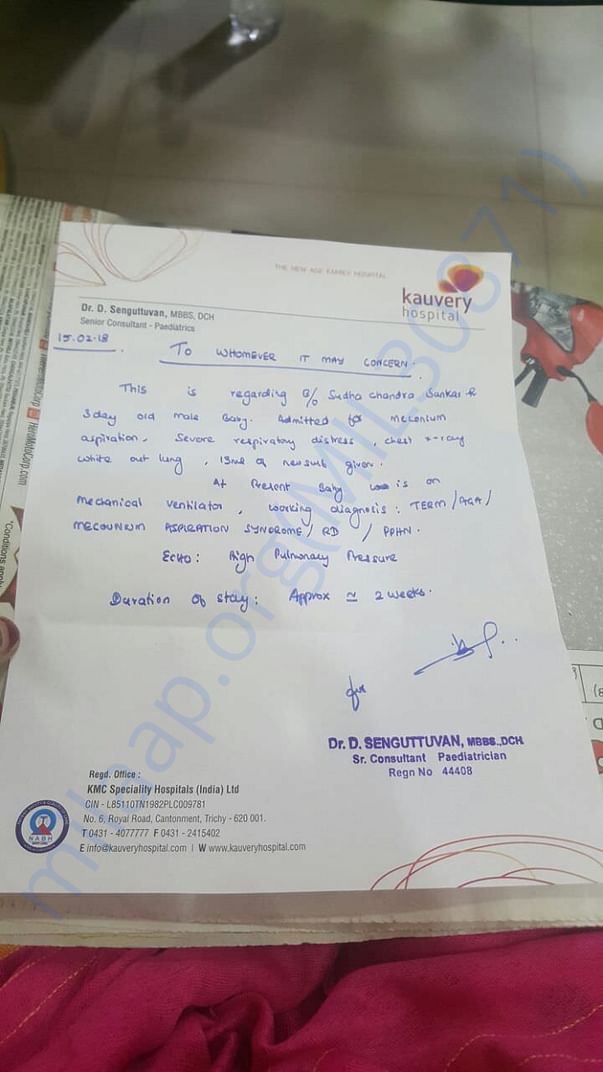 THE NEW AGE FAMILY HOSPITAL
kauvery
hospital
Dr. D. Senguttuvan, MBBS, DCH
Senior Consultant - Paediatrics
15.02.18
TO WHOMEVER IT MAY CONCERN.
This is regarding B/o Sudha chandra Sankar
3day old male Baby. Admitted for meconium
aspiration. Severe respiratory distress, chest x-ray
white out lung, 13ml of given.
At Present Baby is on
mechanical ventilator, working diagnosis: TERM/AGA/
MECOUNIUM ASPIRATION SYNDROME/ RD / PPHN.
ECHO: High Pulmonary Pressure
Duration of stay: Approx ≃ 2 weeks.
for
Dr. D. SENGUTTUVAN, MBBS.,DCH
Sr. Consultant Paediatrician
Regn No 44408
Regd. Office :
KMC Speciality Hospitals (India) Ltd
CIN - L85110TN1982PLC009781
No. 6, Royal Road, Cantonment, Trichy - 620 001.
T 0431 - 4077777 F 0431 - 2415402
E info@kauveryhospital.com | W www.kauveryhospital.com
NABH
HeroMotoCorp.com
*Conditions apply
milaap.org(MIL30871)